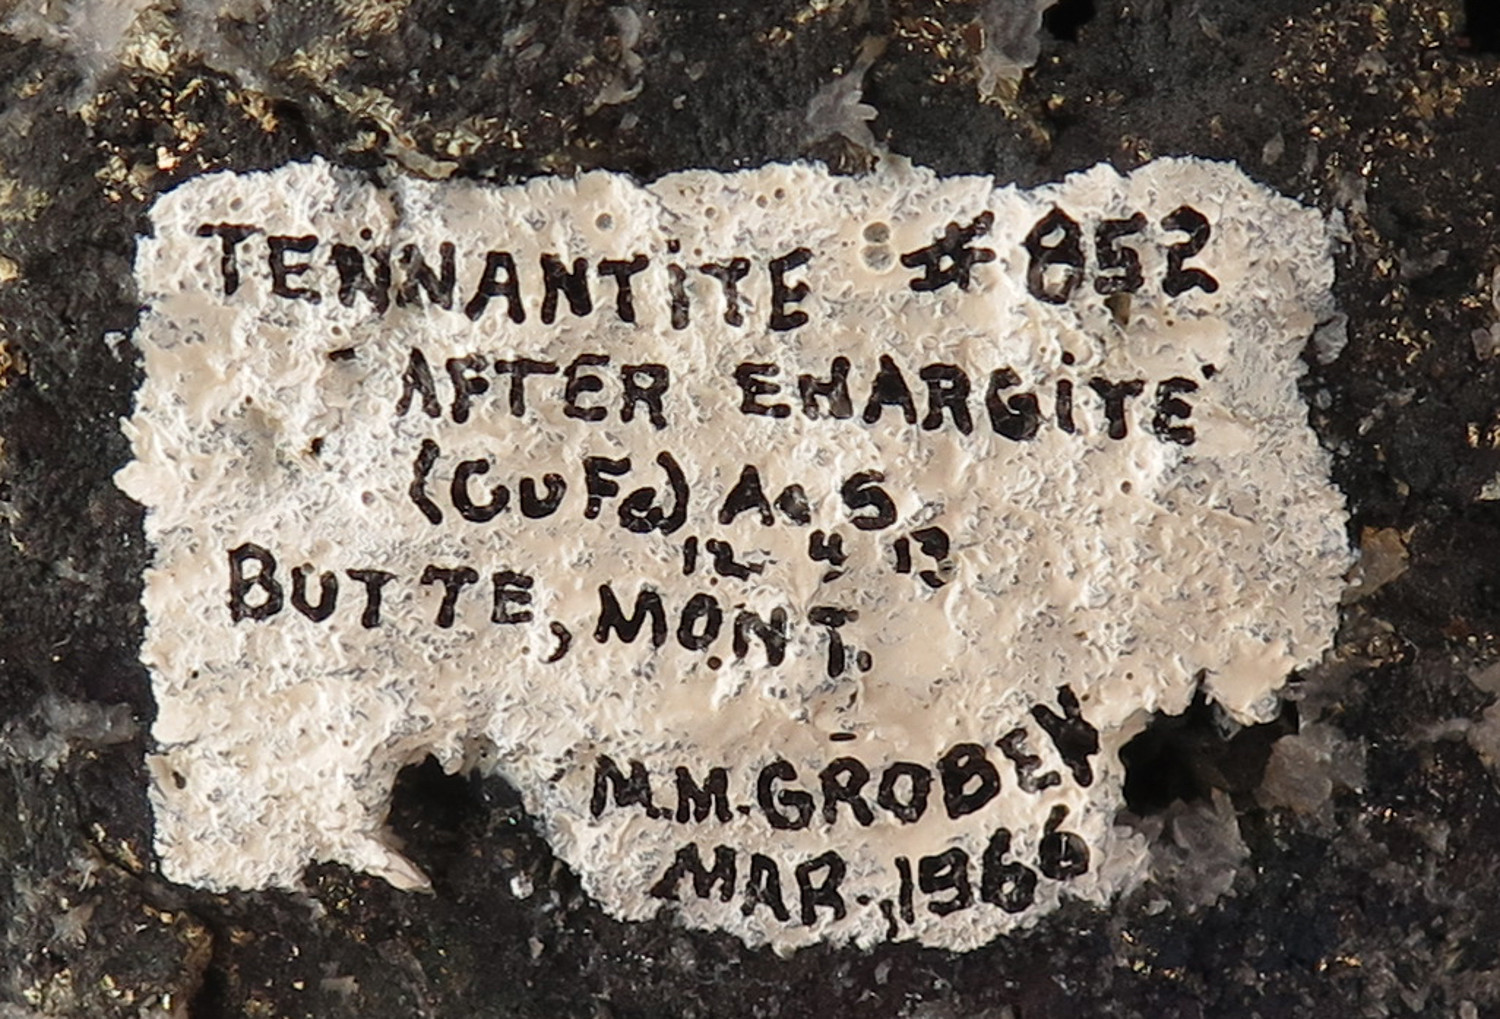 TENNANTITE #852
AFTER ENARGITE
(CuFe) As S
12 4 13
BUTTE, MONT.
M.M. GROBEN
MAR., 1966